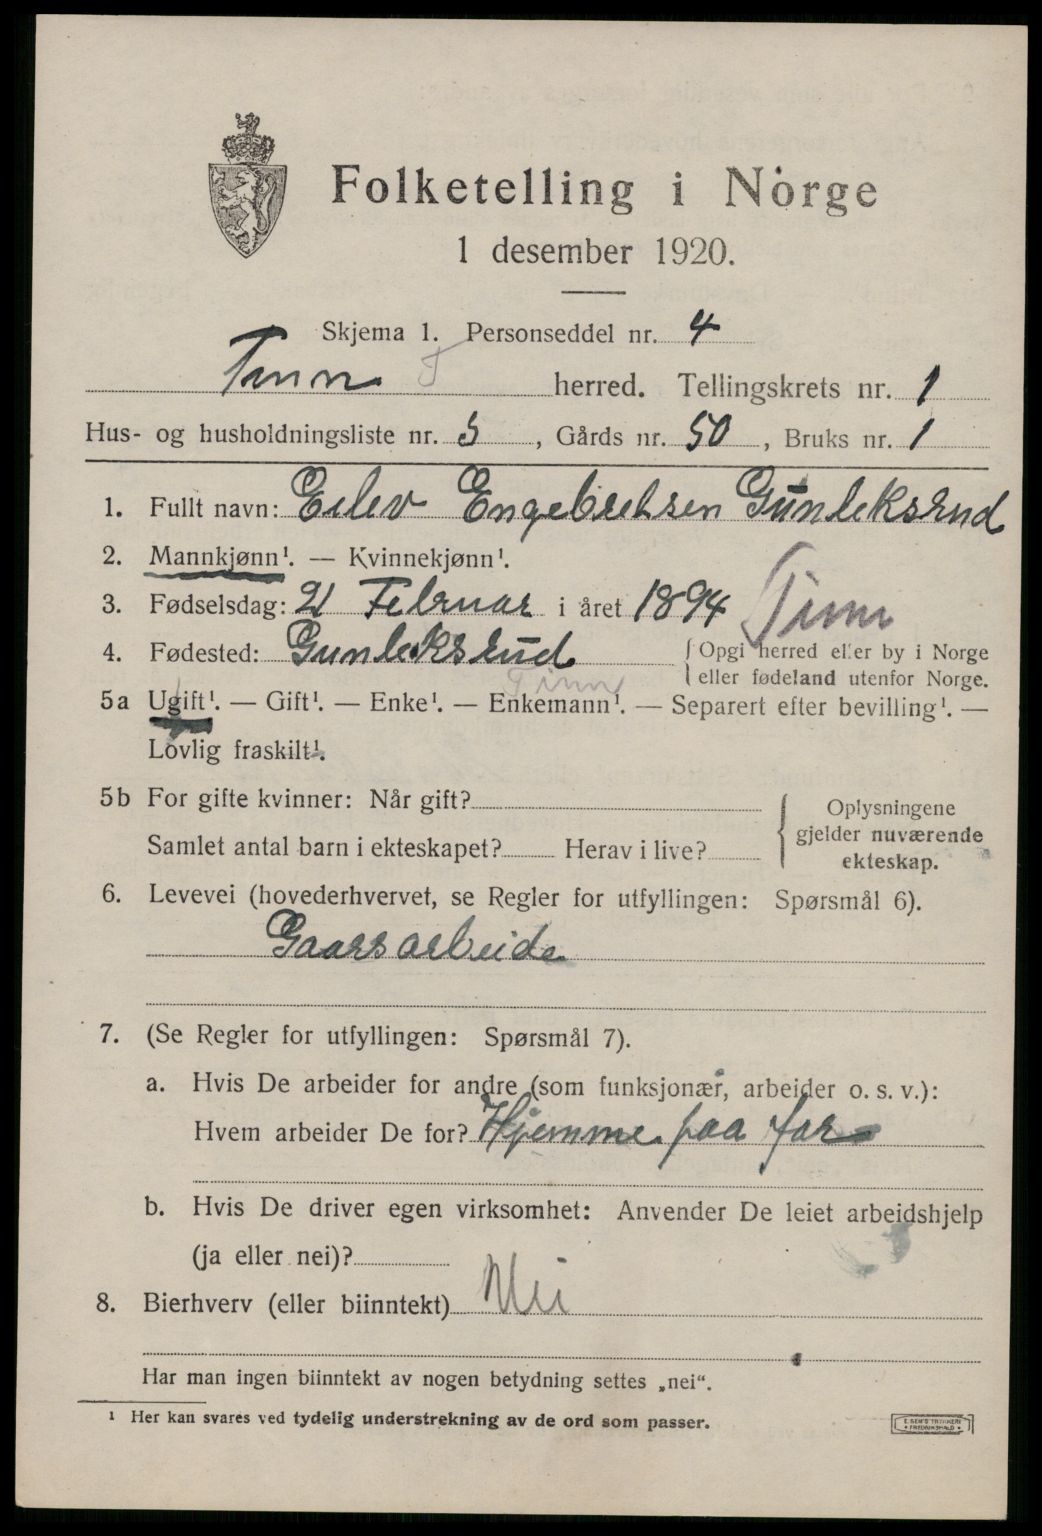 Folketelling i Norge
1 desember 1920.
Skjema 1. Personseddel nr. 4
Tinn T herred. Tellingskrets nr. 1
Hus- og husholdningsliste nr. 5, Gårds nr. 50, Bruks nr. 1
1. Fullt navn: Eilev Engebretsen Gunleksrud
2. Mannkjønn¹. — Kvinnekjønn¹.
3. Fødselsdag: 21 Februar i året 1894 Tinn
4. Fødested: Gunleksrud { Opgi herred eller by i Norge
eller fødeland utenfor Norge.
Tinn
5a Ugift¹. — Gift¹. — Enke¹. — Enkemann¹. — Separert efter bevilling¹. —
Lovlig fraskilt¹.
5b For gifte kvinner: Når gift?
Samlet antal barn i ekteskapet? Herav i live?
Oplysningene
gjelder nuværende
ekteskap.
6. Levevei (hovederhvervet, se Regler for utfyllingen: Spørsmål 6).
Gaarsarbeide
7. (Se Regler for utfyllingen: Spørsmål 7).
a. Hvis De arbeider for andre (som funksjonær, arbeider o. s. v.):
Hvem arbeider De for? Hjemme paa far
b. Hvis De driver egen virksomhet: Anvender De leiet arbeidshjelp
(ja eller nei)?
8. Bierhverv (eller biinntekt) Nei
Har man ingen biinntekt av nogen betydning settes „nei“.
¹ Her kan svares ved tydelig understrekning av de ord som passer.
E. SEM'S TRYKKERI
FREDRIKSHALD